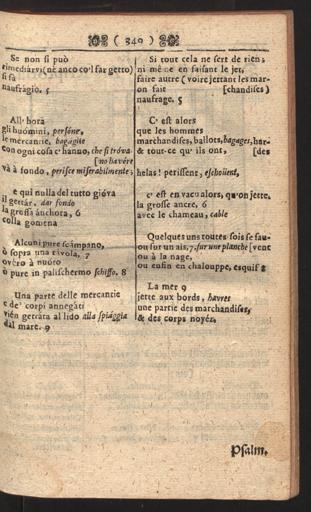 ( 340 )
Se non si può
rimediárvi (nè anco co'l far getto)
si fà
naufrágio. 5
All' hora
gli huómini, persóne,
le mercantie, bagáglie
con ogni cosa c' hanno, che si tróva
[no havére
và à fondo, perisce miserabilmente;
e qui nulla del tutto gióva
il gettár, dar fondo
la grossa ánchora, 6
colla goména
Alcuni pure scámpano,
ò sopra una távola, 7
ovéro à nuóto
ò pure in palischermo schiffo. 8
Una parte delle mercantie
e de' corpi annegáti
vién gettáta al lido alla spiággia
dal mare. 9
Si tout cela ne sert de rien;
ni même en faisant le jet,
faire autre (voire jettant les mar-
on fait [chandises)
naufrage. 5
C' est alors
que les hommes
marchandises, ballots, bagages, har-
& tout-ce qu' ils ont, [des
helas! perissent, eschoüent,
c' est en vacu alors, qu'on jette,
la grosse ancre, 6
avec le chameau, cable
Quelques uns toutes fois se sau-
ou sur un ais, 7. sur une planche [vent
ou à la nage.
ou enfin en chalouppe, esquif 8
La mer 9
jette aux bords, havres
une partie des marchandises,
& des corps noyéz.
Psalm.